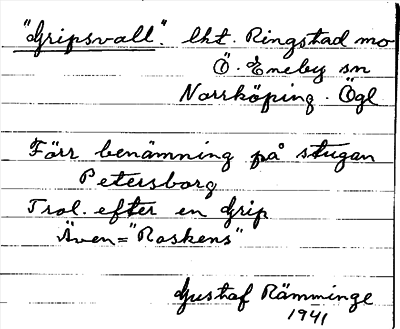 "Gripsvall". lht. Ringstad mo
Ö. Eneby sn
Norrköping. Ögl
Förr benämning på stugan
Petersborg
Trol. efter en Grip
Även = "Roskens"
Gustaf Rämminge
1941